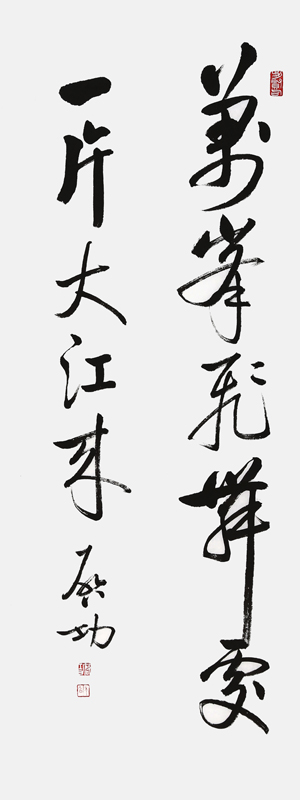 萬峯飛舞處
一片大江來
啟功